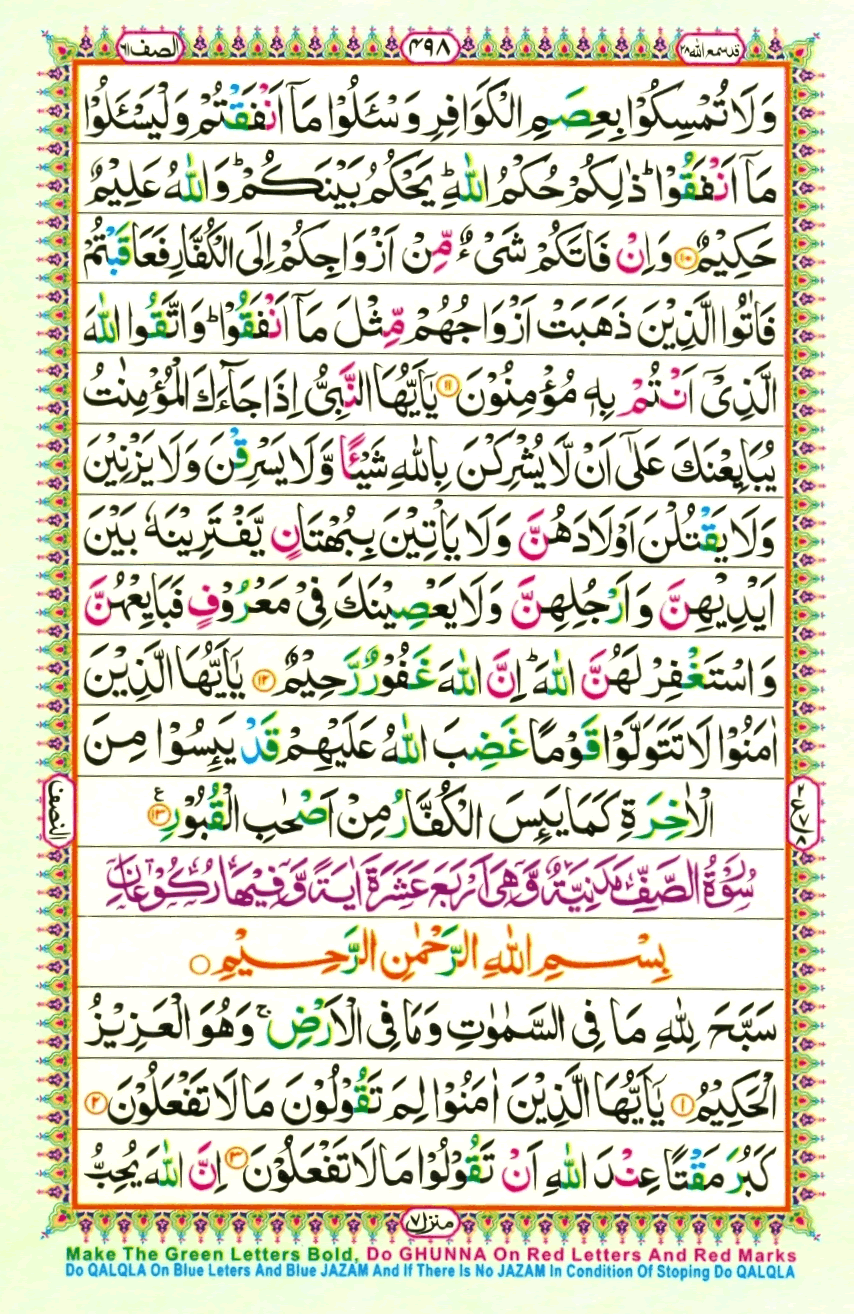 قد سمع الله ۲۸
۴۹۸
الصف ۶۱
وَلَا تُمْسِكُوْا بِعِصَمِ الْكَوَافِرِ وَسْـَٔلُوْا مَاۤ اَنْفَقْتُمْ وَلْيَسْـَٔلُوْا
مَاۤ اَنْفَقُوْا ؕ ذٰلِكُمْ حُكْمُ اللّٰهِ ؕ يَحْكُمُ بَيْنَكُمْ ؕ وَاللّٰهُ عَلِيْمٌ
حَكِيْمٌ ۱۰ وَاِنْ فَاتَكُمْ شَیْءٌ مِّنْ اَزْوَاجِكُمْ اِلَی الْكُفَّارِ فَعَاقَبْتُمْ
فَاٰتُوا الَّذِيْنَ ذَهَبَتْ اَزْوَاجُهُمْ مِّثْلَ مَاۤ اَنْفَقُوْا ؕ وَاتَّقُوا اللّٰهَ
الَّذِیْۤ اَنْتُمْ بِهٖ مُؤْمِنُوْنَ ۱۱ يٰۤاَيُّهَا النَّبِیُّ اِذَا جَآءَكَ الْمُؤْمِنٰتُ
يُبَايِعْنَكَ عَلٰۤی اَنْ لَّا يُشْرِكْنَ بِاللّٰهِ شَيْـًٔا وَّلَا يَسْرِقْنَ وَلَا يَزْنِيْنَ
وَلَا يَقْتُلْنَ اَوْلَادَهُنَّ وَلَا يَاْتِيْنَ بِبُهْتَانٍ يَّفْتَرِيْنَهٗ بَيْنَ
اَيْدِيْهِنَّ وَاَرْجُلِهِنَّ وَلَا يَعْصِيْنَكَ فِیْ مَعْرُوْفٍ فَبَايِعْهُنَّ
وَاسْتَغْفِرْ لَهُنَّ اللّٰهَ ؕ اِنَّ اللّٰهَ غَفُوْرٌ رَّحِيْمٌ ۱۲ يٰۤاَيُّهَا الَّذِيْنَ
اٰمَنُوْا لَا تَتَوَلَّوْا قَوْمًا غَضِبَ اللّٰهُ عَلَيْهِمْ قَدْ يَئِسُوْا مِنَ
الْاٰخِرَةِ كَمَا يَئِسَ الْكُفَّارُ مِنْ اَصْحٰبِ الْقُبُوْرِ ۱۳
سُوْرَةُ الصَّفِّ مَدَنِيَّةٌ وَّهِیَ اَرْبَعَ عَشَرَةَ اٰيَةً وَّفِيْهَا رُكُوْعَانِ
بِسْمِ اللّٰهِ الرَّحْمٰنِ الرَّحِيْمِ
سَبَّحَ لِلّٰهِ مَا فِی السَّمٰوٰتِ وَمَا فِی الْاَرْضِ ۚ وَهُوَ الْعَزِيْزُ
الْحَكِيْمُ ۱ يٰۤاَيُّهَا الَّذِيْنَ اٰمَنُوْا لِمَ تَقُوْلُوْنَ مَا لَا تَفْعَلُوْنَ ۲
كَبُرَ مَقْتًا عِنْدَ اللّٰهِ اَنْ تَقُوْلُوْا مَا لَا تَفْعَلُوْنَ ۳ اِنَّ اللّٰهَ يُحِبُّ
النصف
منزل ۷
Make The Green Letters Bold, Do GHUNNA On Red Letters And Red Marks
Do QALQLA On Blue Leters And Blue JAZAM And If There Is No JAZAM In Condition Of Stoping Do QALQLA